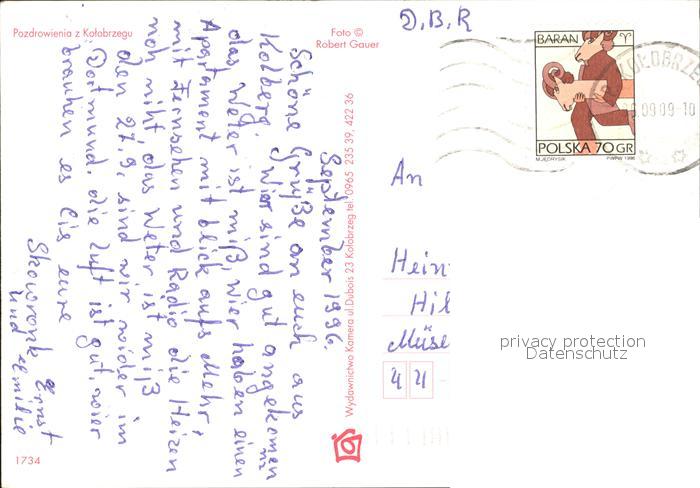 Pozdrowienia z Kołobrzegu
Foto ©
Robert Gauer
D.B.R
BARAN ♈
POLSKA 70 GR
M.JĘDRYSIK PWPW 1996
KOŁOBRZEG
09 09-10
September 1996.
Schöne Grüße an euch aus
Kolberg. Wier sind gut angekomen
das Weter ist miß, wier haben einen
Apartament mit blick aufs Mehr,
mit Fernsehen und Radio die Heizen
noh niht, das Weter ist miß
den 27.9. sind wir wider im
Dortmund. die luft ist gut, wier
brauhen es bis eure
Skowronk Ernst
und Emilie
Wydawnictwo Kamera ul.Dubois 23 Kołobrzeg tel. 0965 235 39, 422 36
An
Hein
Hil
Müse
44
privacy protection
Datenschutz
1734